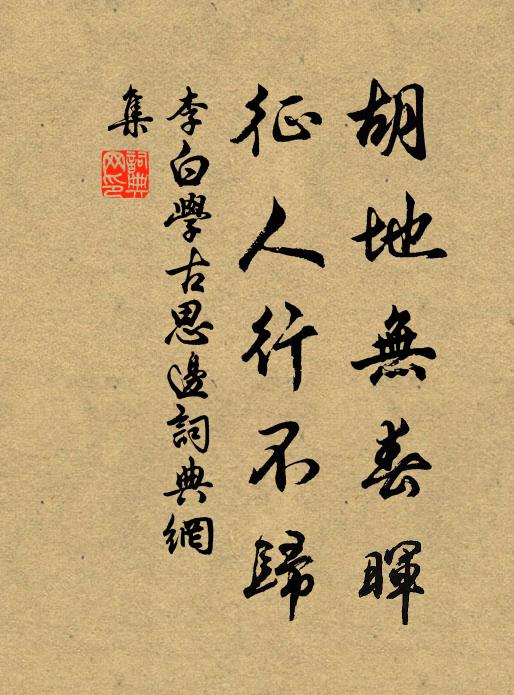 胡地無春暉
征人行不歸
李白學古思邊詞典網
集
詞典
网印